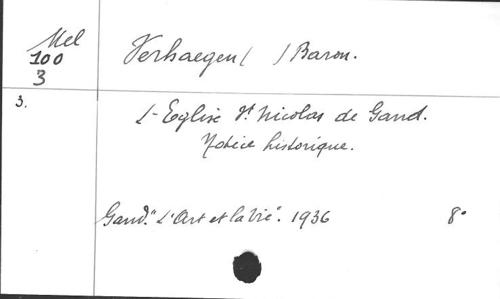 Mel
100
3
Verhaegen/ /Baron.
3.
L'Eglise St Nicolas de Gand.
Notice historique.
Gand. "L'Art et la Vie". 1936 8°